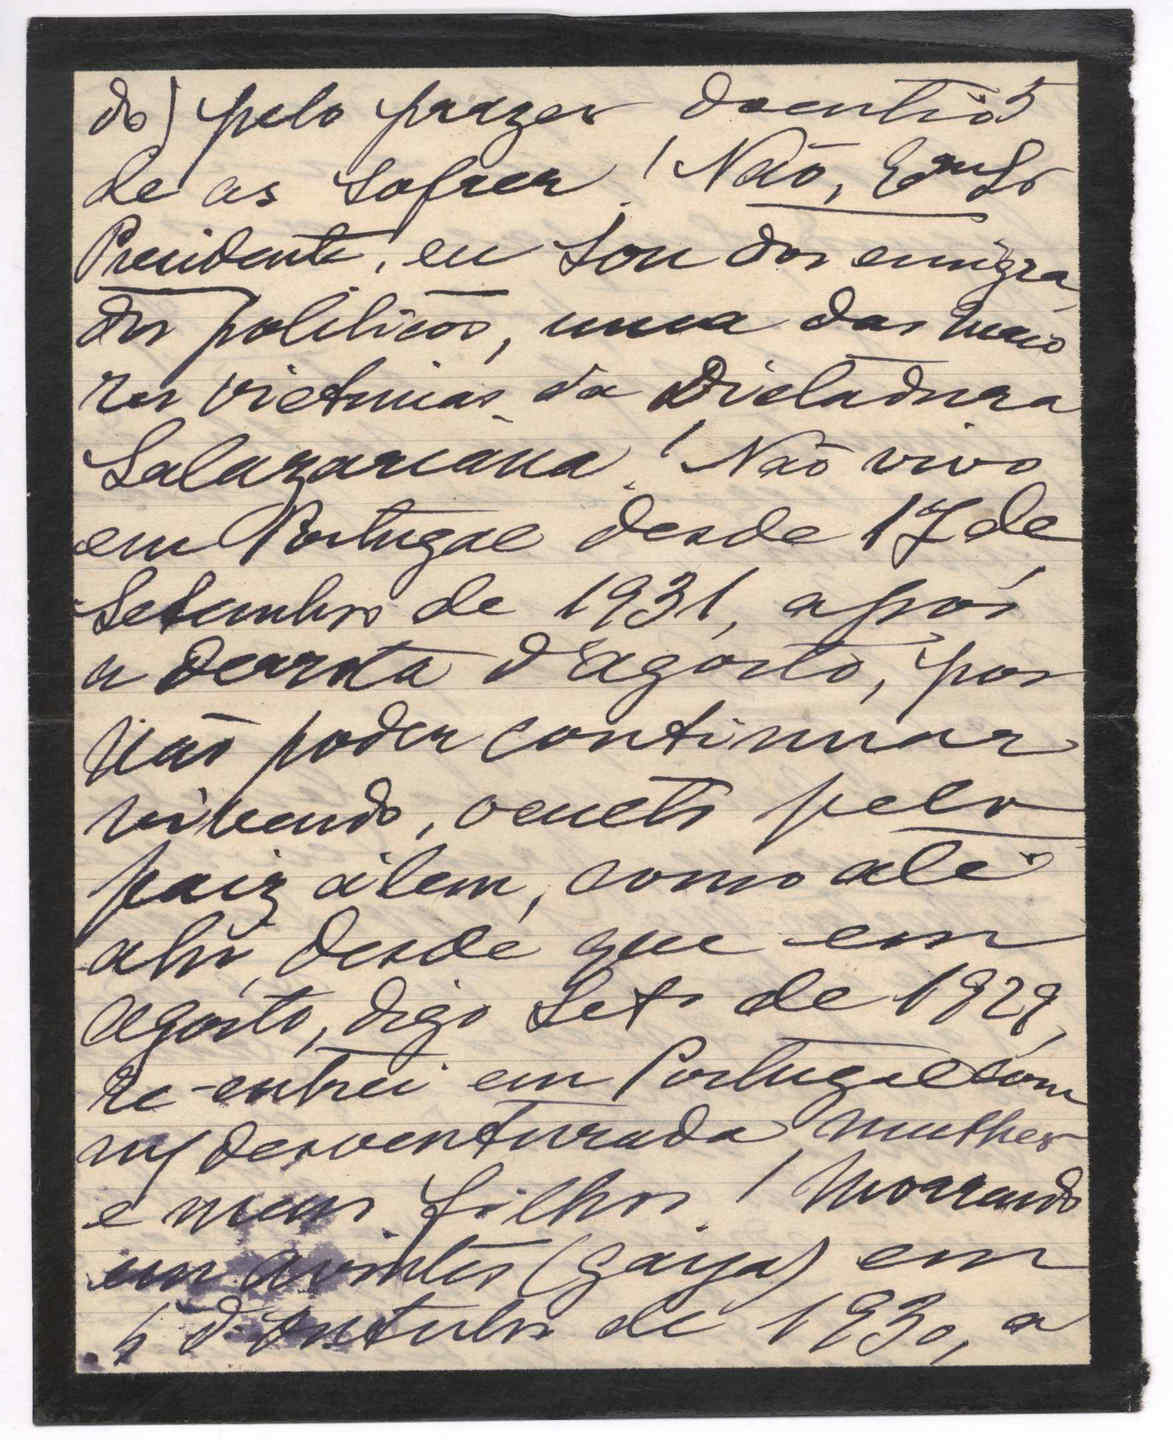 do) pelo prazer doentio 5
de as sofrer! Não, Exmo Sr
Presidente, eu sou dos emigra
dos politicos, uma das maio
res victimas da Dictadura
Salazariana! Não vivo
em Portugal desde 17 de
Setembro de 1931, após
a derrota d'agosto, por
não poder continuar
vivendo, oculto pelo
paiz álem, como até
ahi, desde que em
agosto, digo Seto de 1929,
re-entrei em Portugal com
m/ desventurada mulher
e meus filhos! Morrendo
em Avintes (Gaya) em
5 d'Outubro de 1930, a